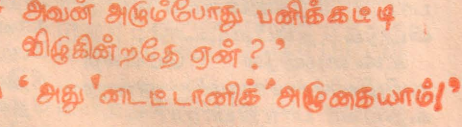 அவன் அழும்போது பனிக்கட்டி
விழுகின்றதே ஏன்?'
'அது 'டைட்டானிக்' அழுகையாம்!'